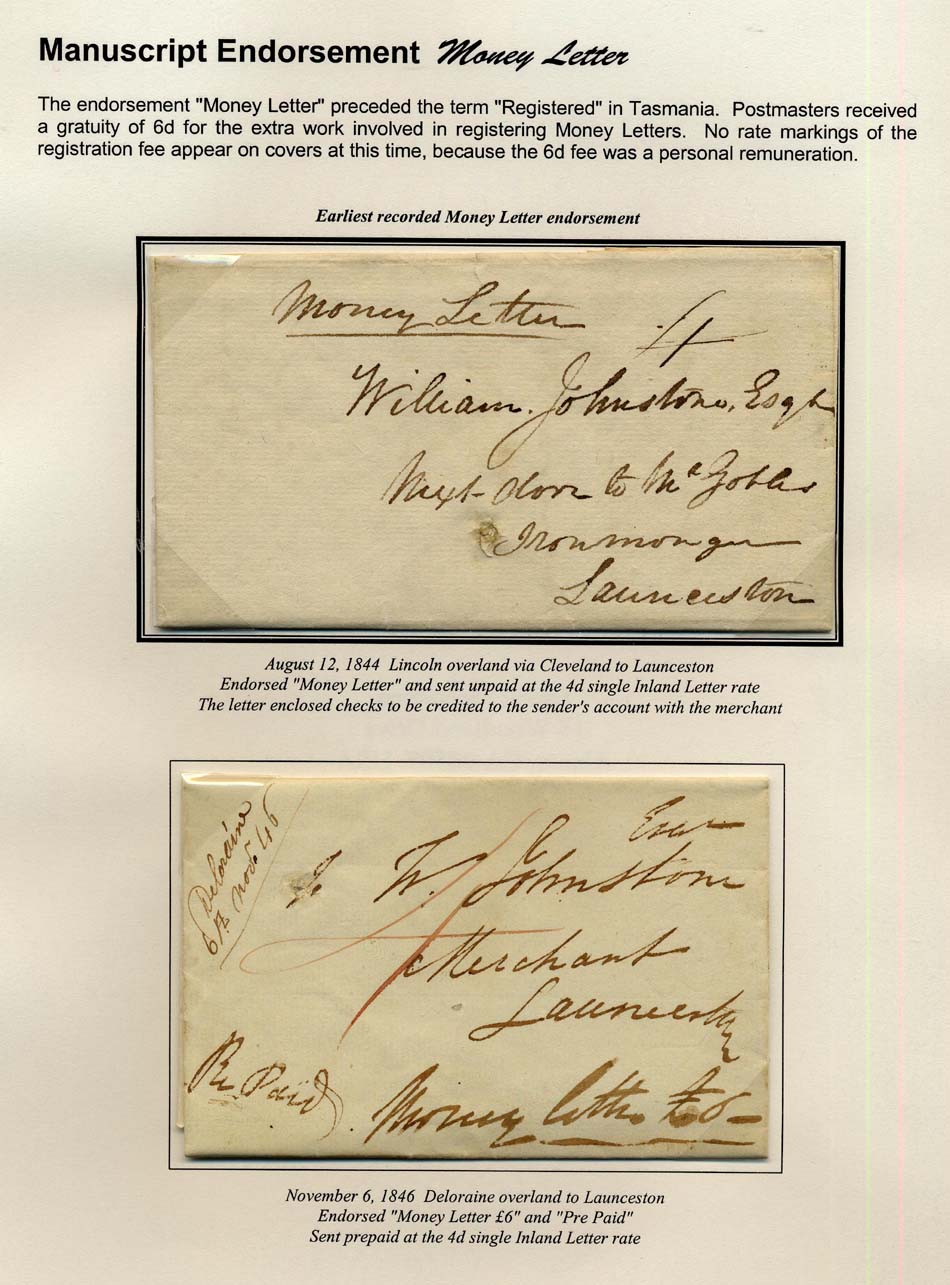 Manuscript Endorsement Money Letter
The endorsement "Money Letter" preceded the term "Registered" in Tasmania. Postmasters received
a gratuity of 6d for the extra work involved in registering Money Letters. No rate markings of the
registration fee appear on covers at this time, because the 6d fee was a personal remuneration.
Earliest recorded Money Letter endorsement
Money Letter
4
William Johnstone, Esqr
Next door to Mr
Ironmonger
Launceston
August 12, 1844 Lincoln overland via Cleveland to Launceston
Endorsed "Money Letter" and sent unpaid at the 4d single Inland Letter rate
The letter enclosed checks to be credited to the sender's account with the merchant
Deloraine
6th Nov. 46
W. Johnstone
4
Merchant
Launceston
Pre Paid
Money letter £6-
November 6, 1846 Deloraine overland to Launceston
Endorsed "Money Letter £6" and "Pre Paid"
Sent prepaid at the 4d single Inland Letter rate